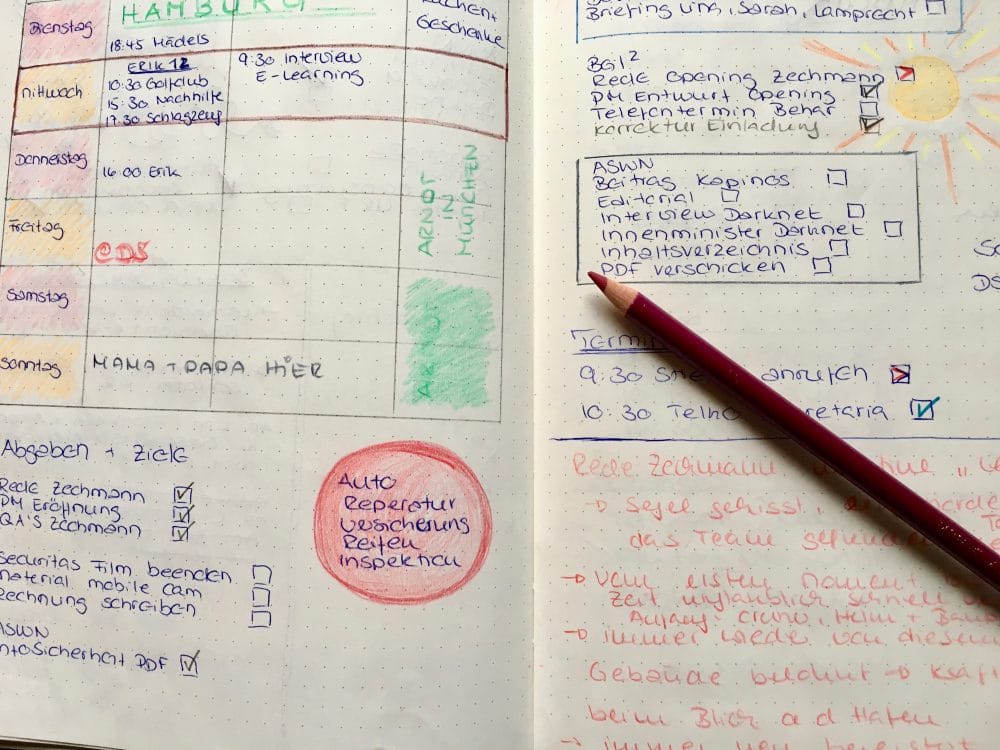 HAMBURG
Dienstag
18:45 Mädels
Geschenke
Mittwoch
ERIK 12
10:30 Golfclub
15:30 Nachhilfe
17.30 Schlagzeug
9:30 Interview
E-Learning
Donnerstag
16:00 Erik
Freitag
@DS
ARNOT
IN
MÜNCHEN
Samstag
Sonntag
MAMA + PAPA HIER
Abgeben + Ziele
Rede Zechmann
PM Eröffnung
Q&A's Zechmann
Securitas Film beenden
Material mobile cam
Rechnung schreiben
ASWN
PDF
Auto
Reperatur
Versicherung
Reifen
Inspektion
Briefing Uni, Sarah, Lamprecht
BGI²
Rede Opening Zechmann
PM Entwurf Opening
Telefontermin Behar
Korrektur Einladung
ASWN
Beitrag Kapinos
Editorial
Interview Darknet
Innenminister Darknet
Inhaltsverzeichnis
PDF verschicken
DS
9:30
10:30
Rede Zechmann
→ Segel gehisst,
das Team
→ Vom ersten Moment
Zeit unglaublich schnell
→ immer wieder von diesem
Gebäude
beim Blick a d Hafen
→ immer